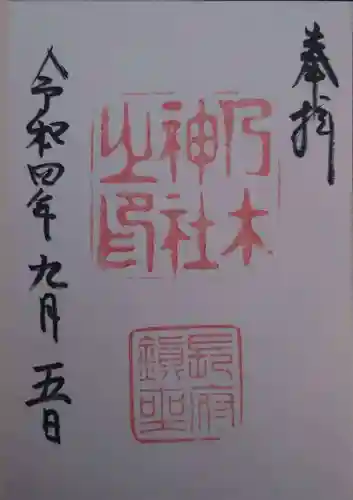 奉拝
乃木
神社
之印
長府
鎮聖
令和四年九月五日